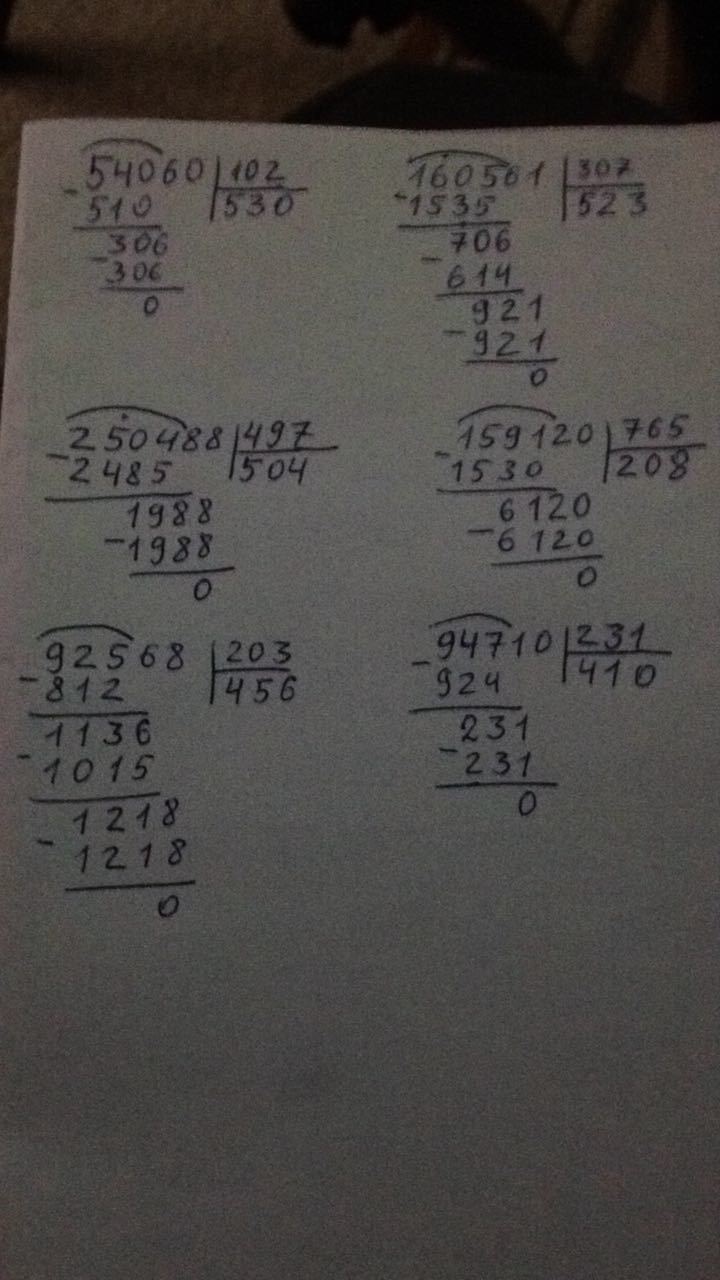 54060 102
- 510 530
306
- 306
0
160561 307
- 1535 523
706
- 614
921
- 921
0
250488 497
- 2485 504
1988
- 1988
0
159120 765
- 1530 208
6120
- 6120
0
92568 203
- 812 456
1136
- 1015
1218
- 1218
0
94710 231
- 924 410
231
- 231
0